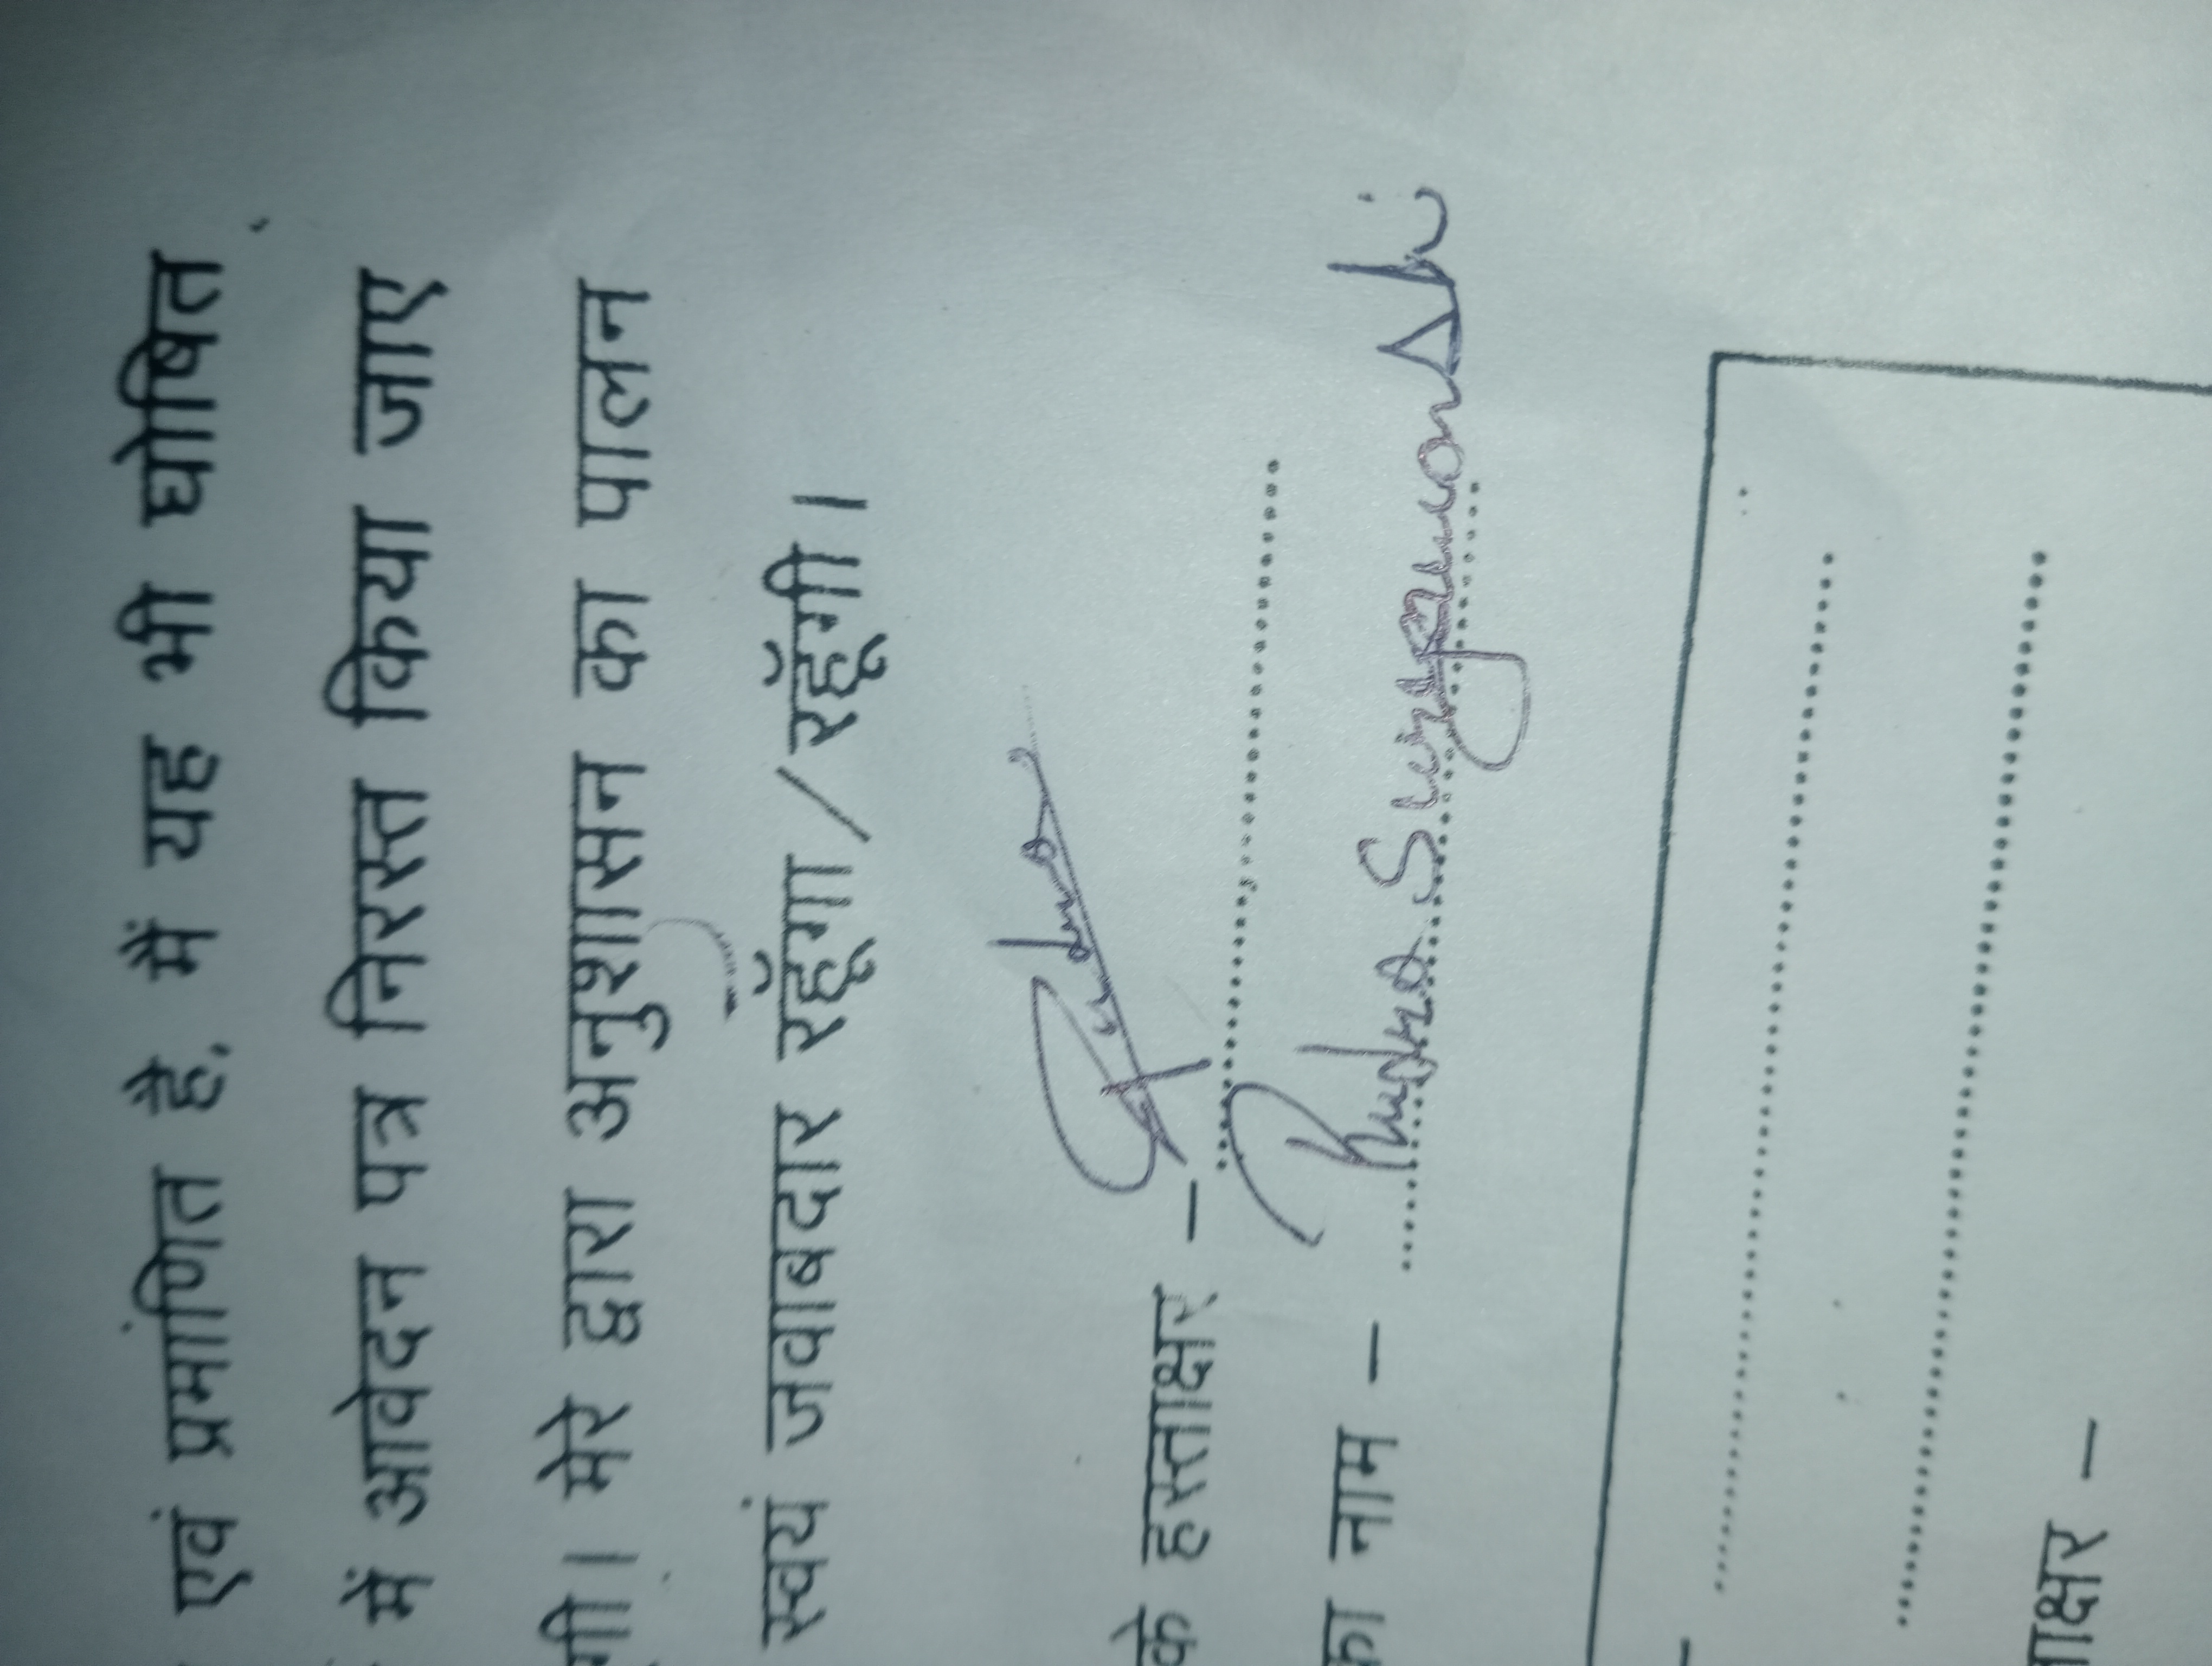 एवं प्रमाणित है. मैं यह भी घोषित
में आवेदन पत्र निरस्त किया जाए
गी। मेरे द्वारा अनुशासन का पालन
स्वयं जवाबदार रहूँगा / रहूँगी।
के हस्ताक्षर –
का नाम – Rudra Suryawanshi
ाक्षर –